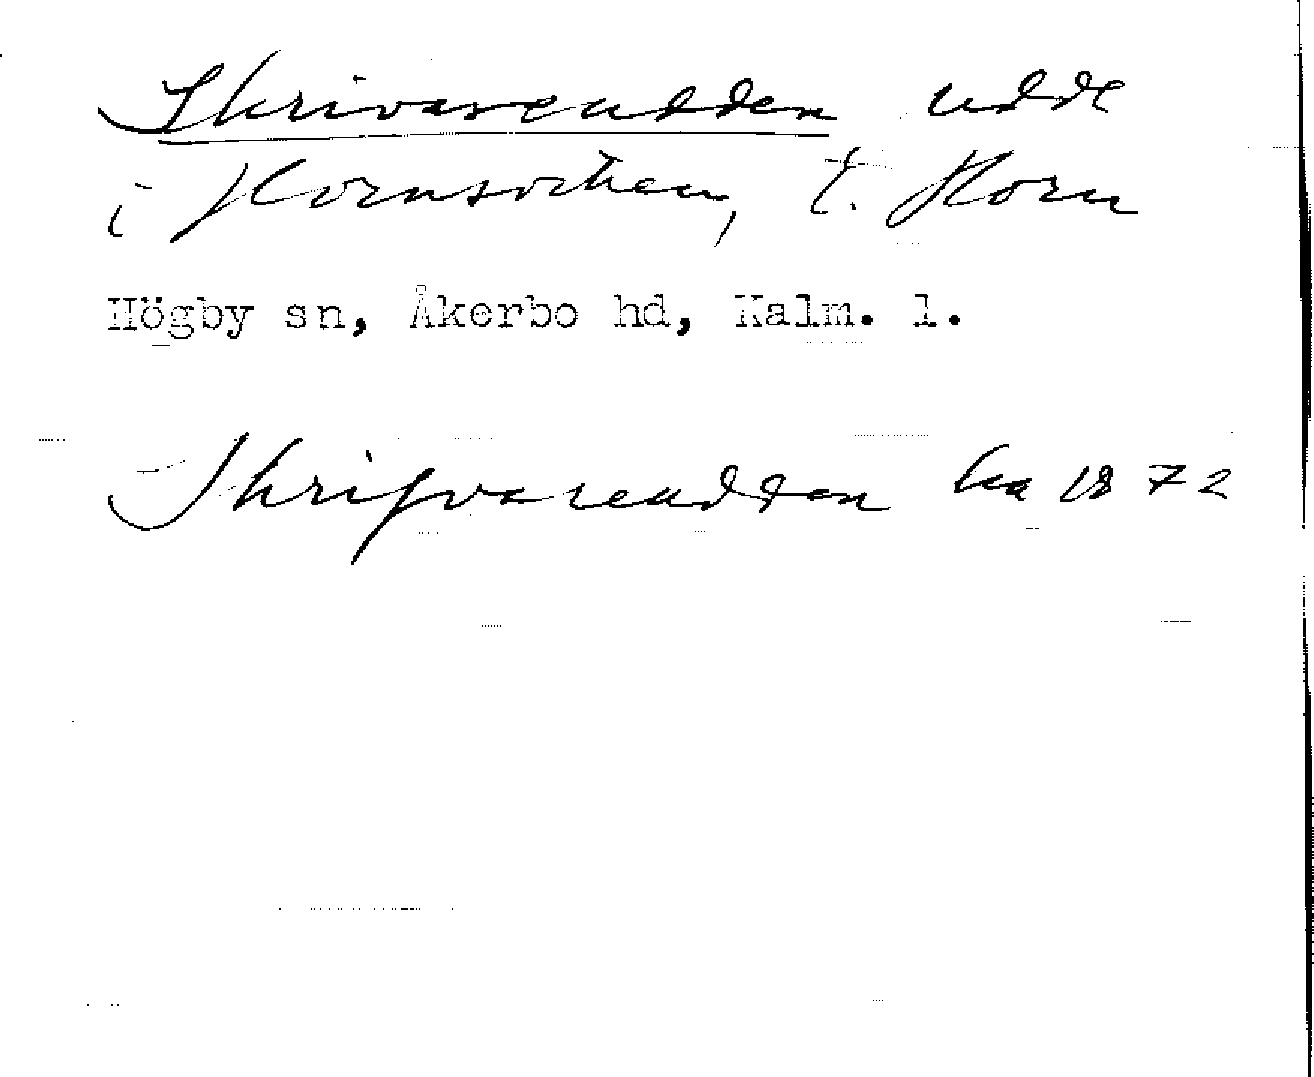 Skrivareudden udde
i Hornsviken, t. Horn
Högby sn, Åkerbo hd, Kalm. l.
Skrifvareudden ha 1872